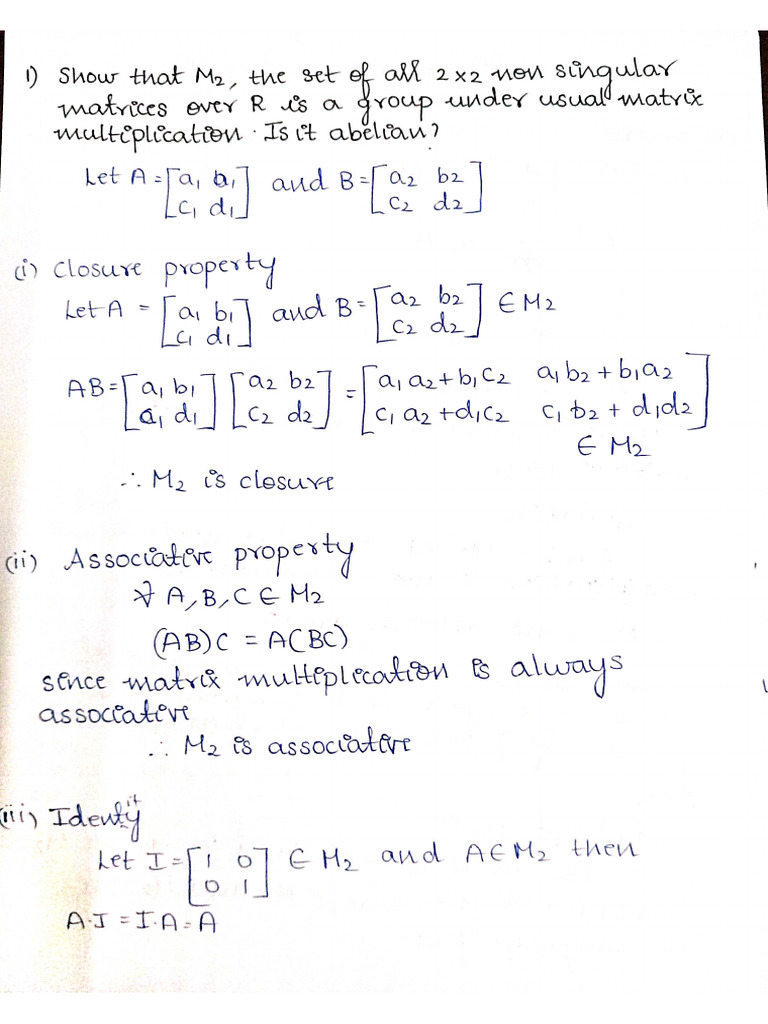 1) Show that M₂, the set of all 2×2 non singular
matrices over R is a group under usual matrix
multiplication. Is it abelian?
Let A = [a₁ b₁ c₁ d₁] and B = [a₂ b₂ c₂ d₂]
(i) Closure property
Let A = [a₁ b₁ c₁ d₁] and B = [a₂ b₂ c₂ d₂] ∈ M₂
AB = [a₁ b₁ c₁ d₁] [a₂ b₂ c₂ d₂] = [a₁a₂+b₁c₂ a₁b₂+b₁a₂ c₁a₂+d₁c₂ c₁b₂+d₁d₂]
∈ M₂
∴ M₂ is closure
(ii) Associative property
∀ A, B, C ∈ M₂
(AB)C = A(BC)
since matrix multiplication is always
associative
∴ M₂ is associative
(iii) Identity
Let I = [1 0 0 1] ∈ M₂ and A∈M₂ then
A·I = I·A = A